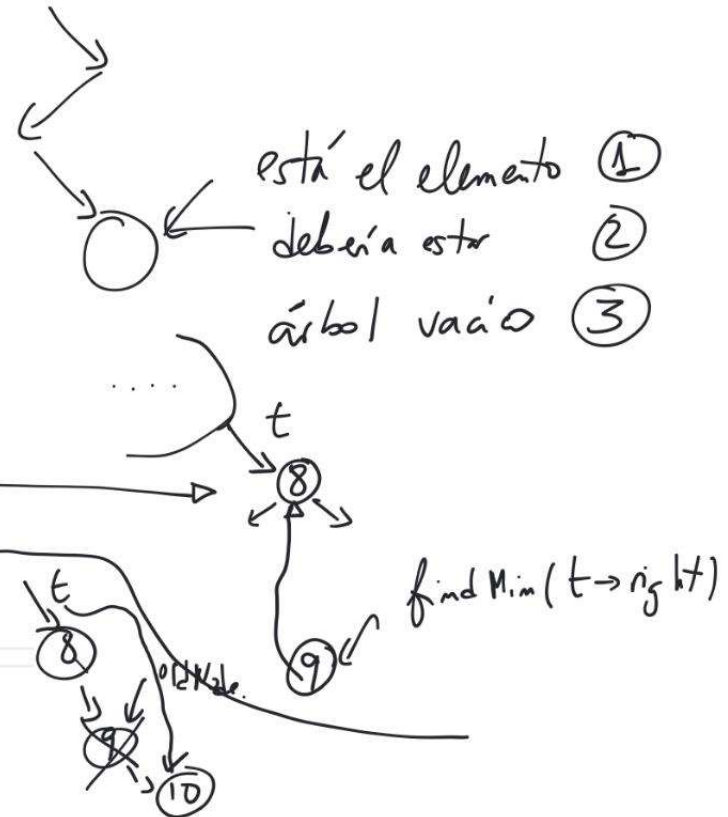 está el elemento 1
debería estar 2
árbol vacío 3
....
t
8
findMin(t→right)
9
t
8
oldNode.
9
10